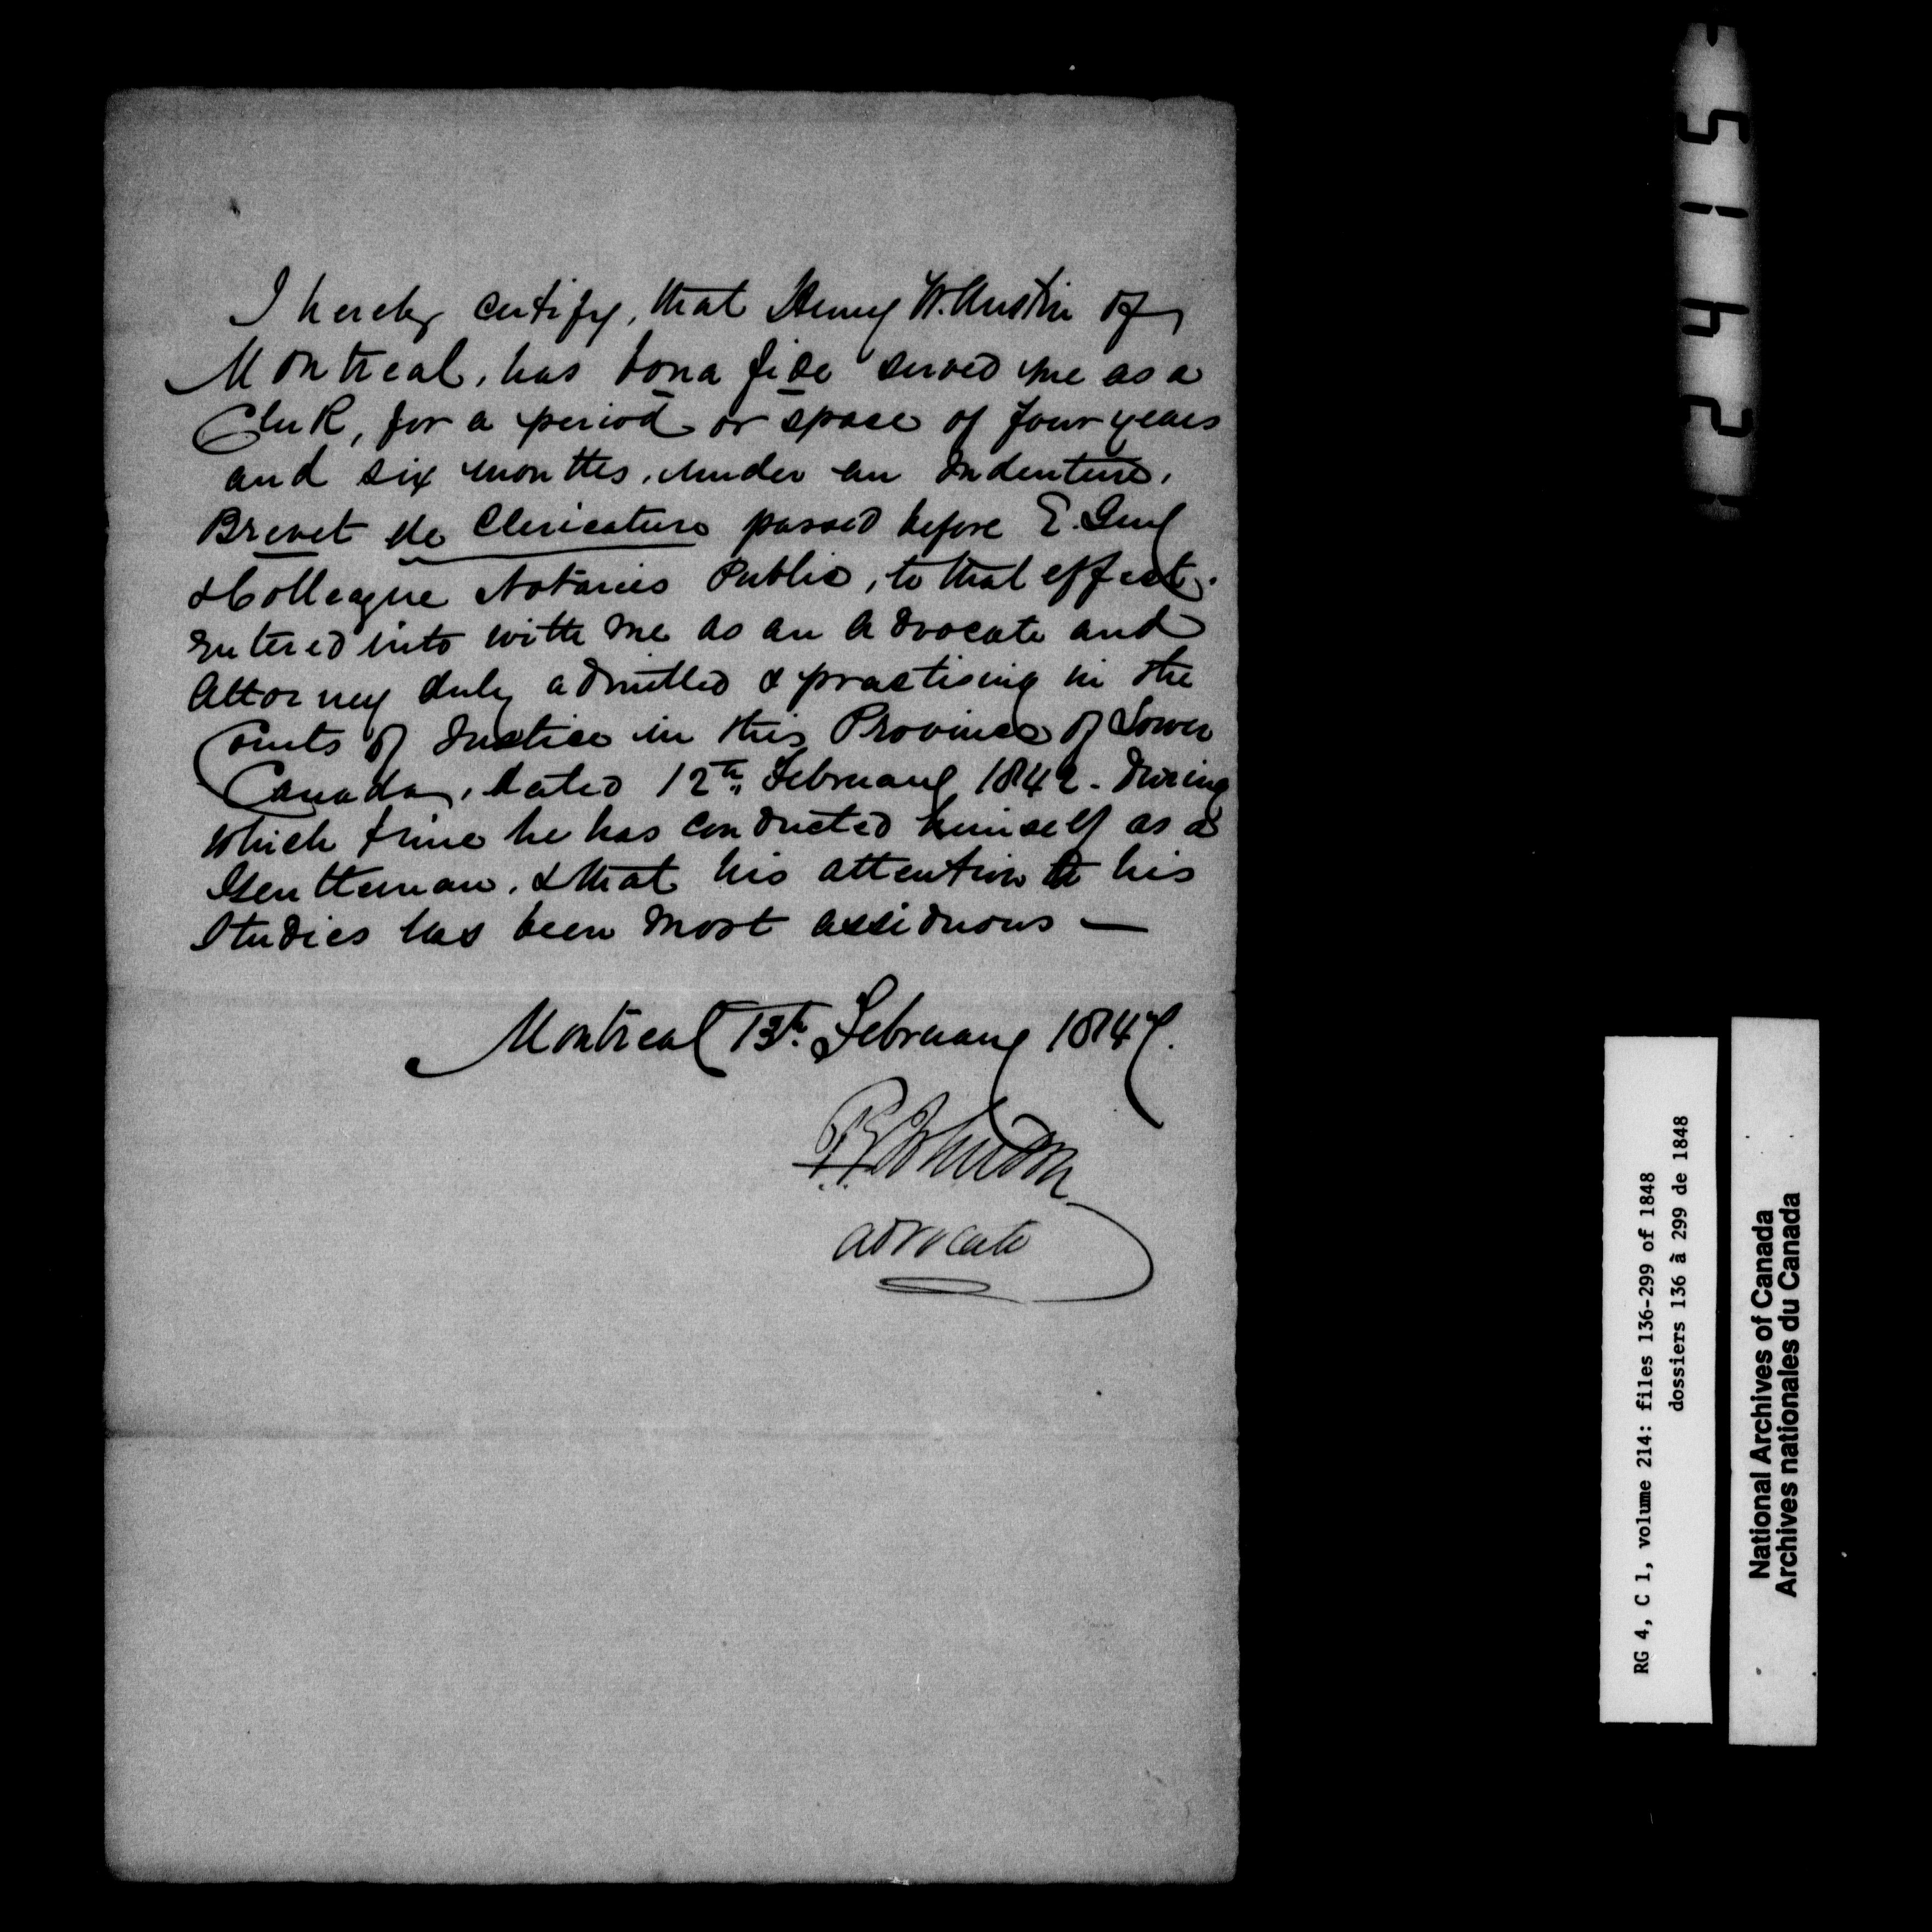 I hereby certify, that Henry W. Austin of
Montreal, has bona fide served me as a
Clerk, for a period or space of four years
and six months, under an Indenture,
Brevet de Clericature passed before E. Guy
& Colleague Notaries Public, to that effect.
Entered into with me as an Advocate and
Attorney duly admitted & practising in the
Courts of Justice in this Province of Lower
Canada, dated 12th February 1842. During
which time he has conducted himself as a
Gentleman, & that his attention to his
Studies has been most assiduous —
Montreal 13th February 1847.
Johnson
Advocate
5142
RG 4, C 1, volume 214: files 136-299 of 1848
dossiers 136 à 299 de 1848
National Archives of Canada
Archives nationales du Canada